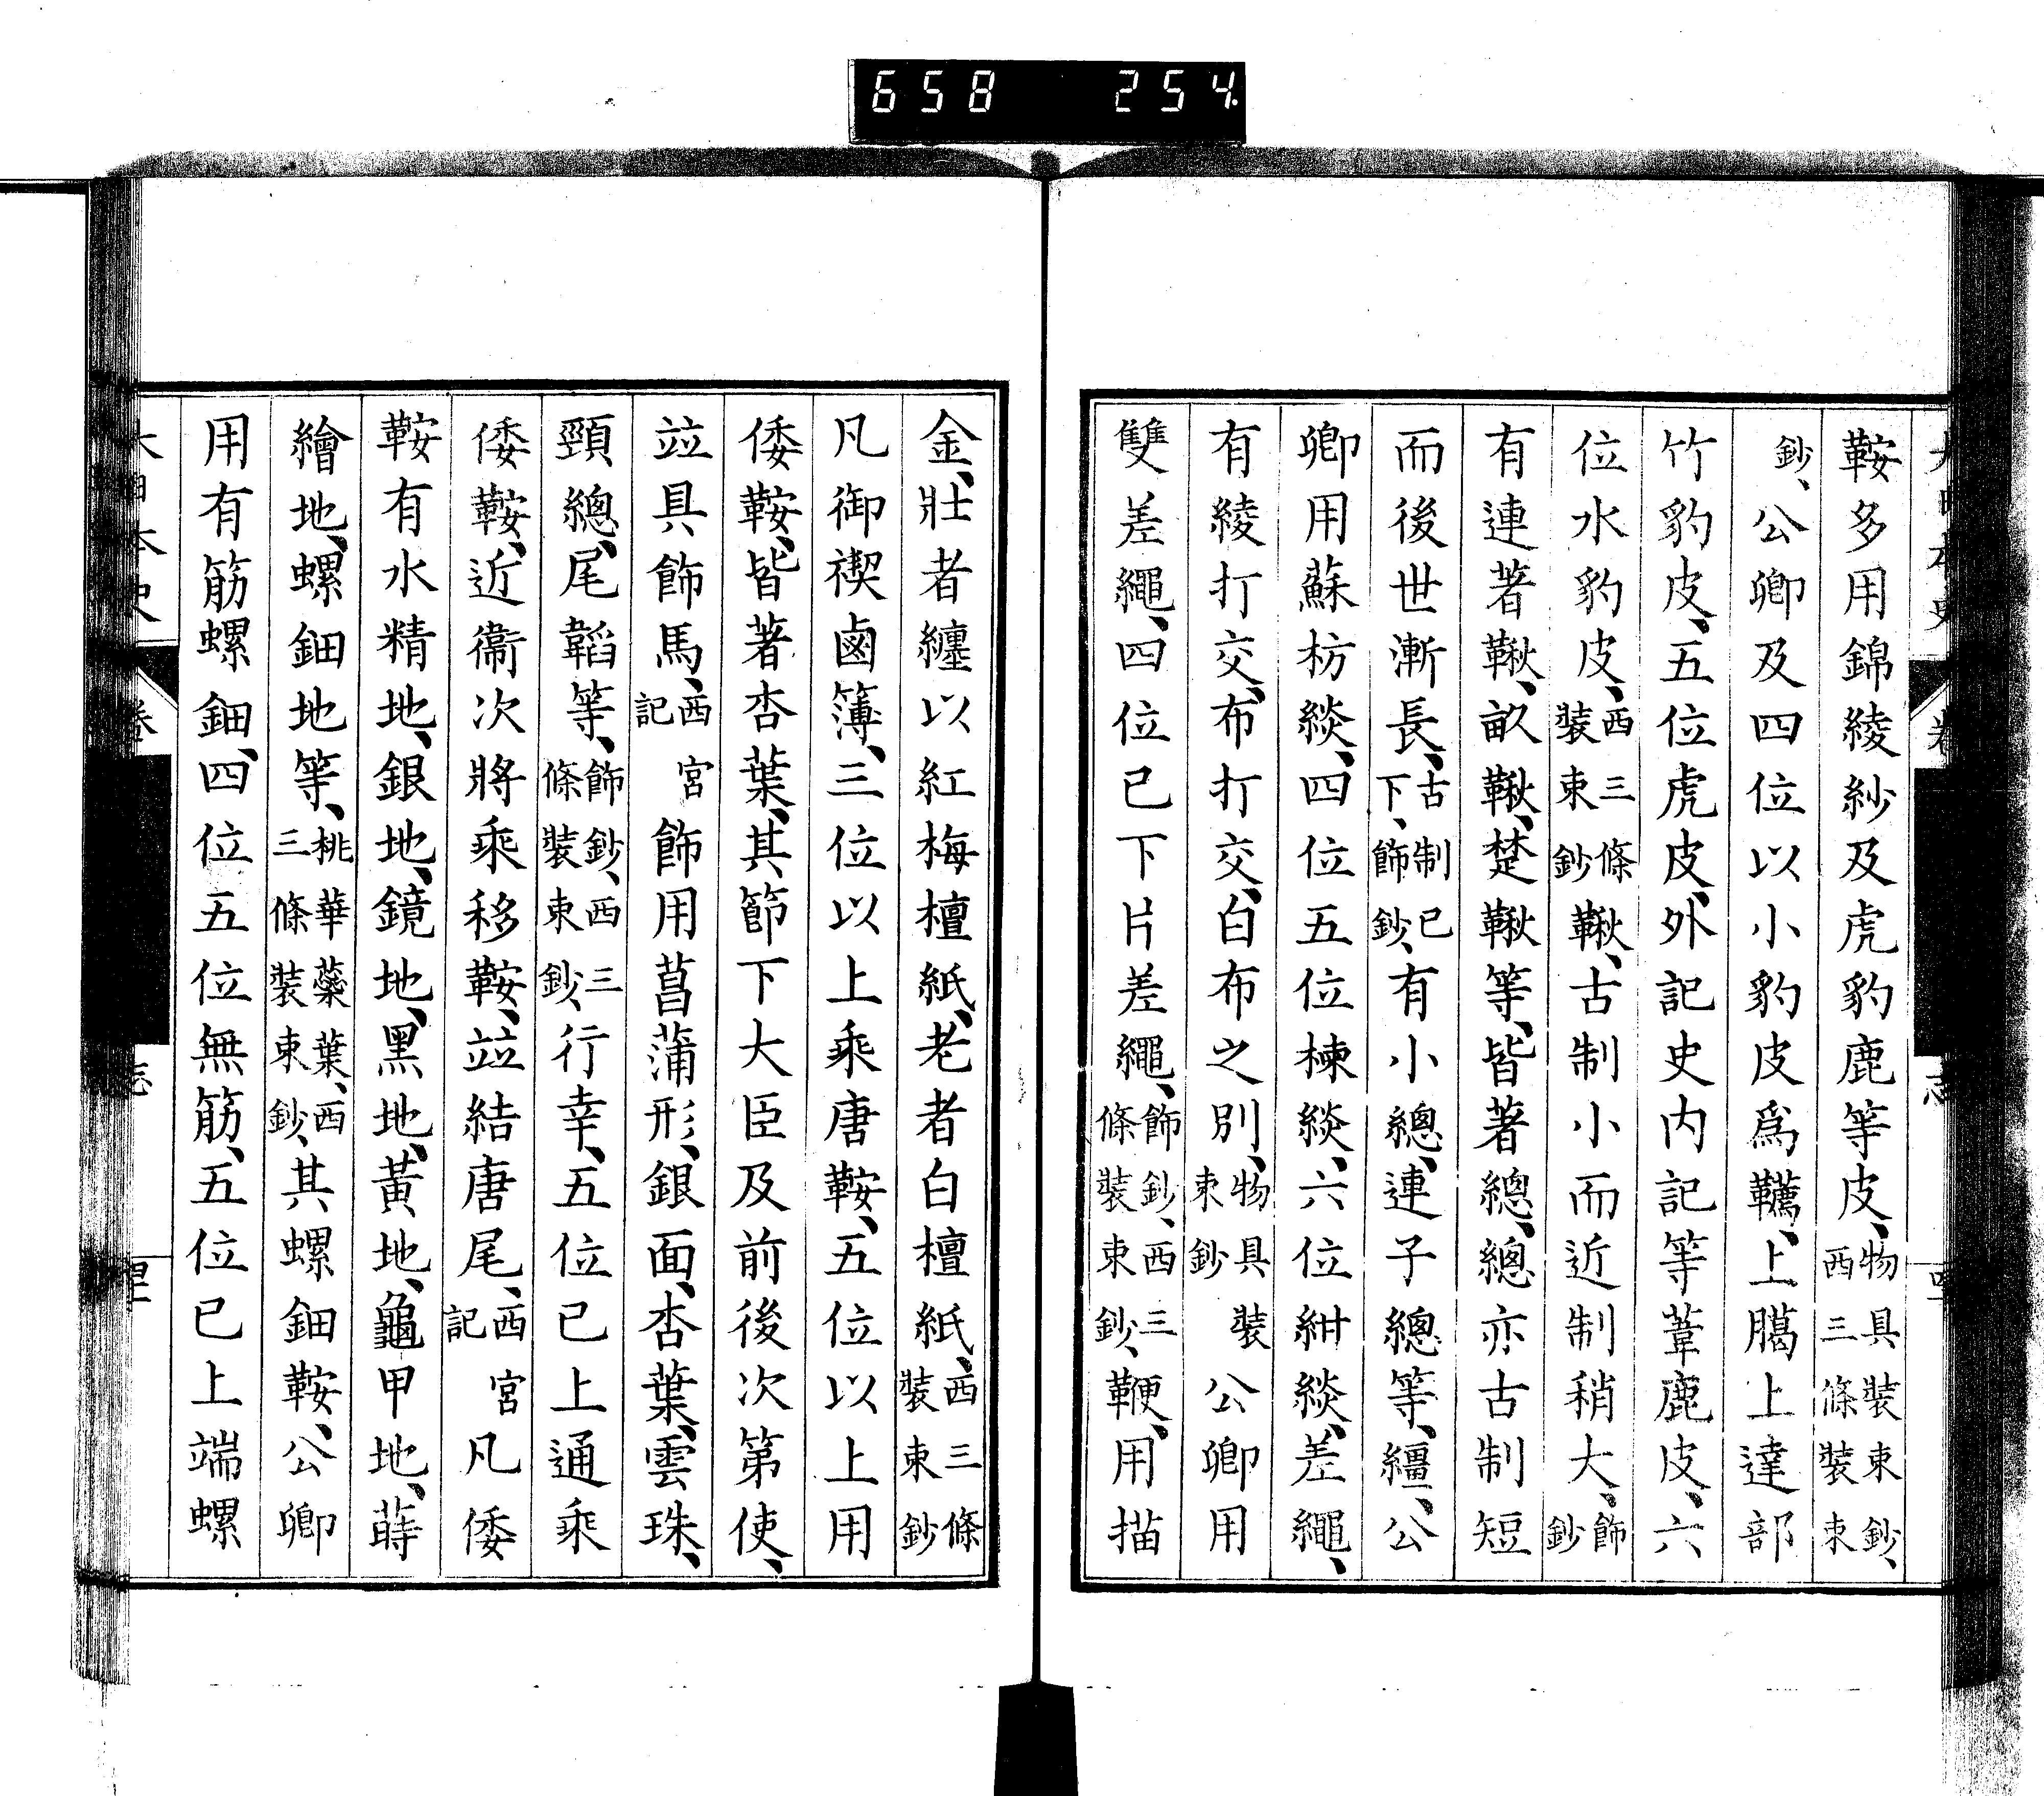 658 254.
鞍多用錦綾紗及虎豹鹿等皮、物具裝束鈔、西三條裝束
鈔、公卿及四位以小豹皮爲韉、上臈上達部
竹豹皮、五位虎皮、外記史内記等葦鹿皮、六
位水豹皮、西三條裝束鈔鞦、古制小而近制稍大、飾鈔
有連著鞦、畝鞦、楚鞦等、皆著總、總亦古制短
而後世漸長、古制已下、飾鈔、有小總、連子總等、繮、公
卿用蘇枋緂、四位五位楝緂、六位紺緂、差繩、
有綾打交、布打交、白布之別、物具裝束鈔公卿用
雙差繩、四位已下片差繩、飾鈔、西三條裝束鈔、鞭、用描
金、壯者纏以紅梅檀紙、老者白檀紙、西三條裝束鈔
凡御禊鹵簿、三位以上乘唐鞍、五位以上用
倭鞍、皆著杏葉、其節下大臣及前後次第使、
竝具飾馬、西宮記飾用菖蒲形、銀面、杏葉、雲珠、
頸總、尾韜等、飾鈔、西三條裝束鈔、行幸、五位已上通乘
倭鞍、近衞次將乘移鞍、竝結唐尾、西宮記凡倭
鞍有水精地、銀地、鏡地、黑地、黃地、龜甲地、蒔
繪地、螺鈿地等、桃華蘂葉、西三條裝束鈔、其螺鈿鞍、公卿
用有筋螺鈿、四位五位無筋、五位已上端螺
大日本史 卷 志